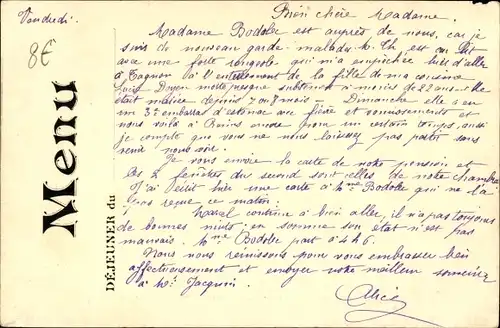 Vendredi.
8€
Menu
DÉJEUNER du
Bien chère Madame.
Madame Bodolec est auprès de nous, car je
suis de nouveau garde-malade. Mr Ch. est au lit
avec une forte angeole qui m'a empêchée hier d'aller
à Cagnon à l'enterrement de la fille de ma cousine
Doyen morte presque subitement à moins de 22 ans - Elle
était mariée depuis 7 ou 8 mois - Dimanche elle a eu
un embarras d'estomac avec fièvre et vomissements et
nous voilà à mode pour un certain temps aussi
je compte que vous ne nous laissez pas partir sans
venir nous voir.
Je vous envoie la carte de notre pension et
les 2 fenêtres du second sont celles de notre chambre
J'ai écrit hier une carte à Mme Bodolec qui ne l'a
pas reçue ce matin.
Marcel continue à bien aller, il n'a pas toujours
de bonnes nuits en somme son état n'est pas
mauvais. Mme Bodolec part à 4 h 6.
Nous nous réunissons pour vous embrasser bien
affectueusement et envoyer notre meilleur souvenir
à Mr Jacquin.
Alice